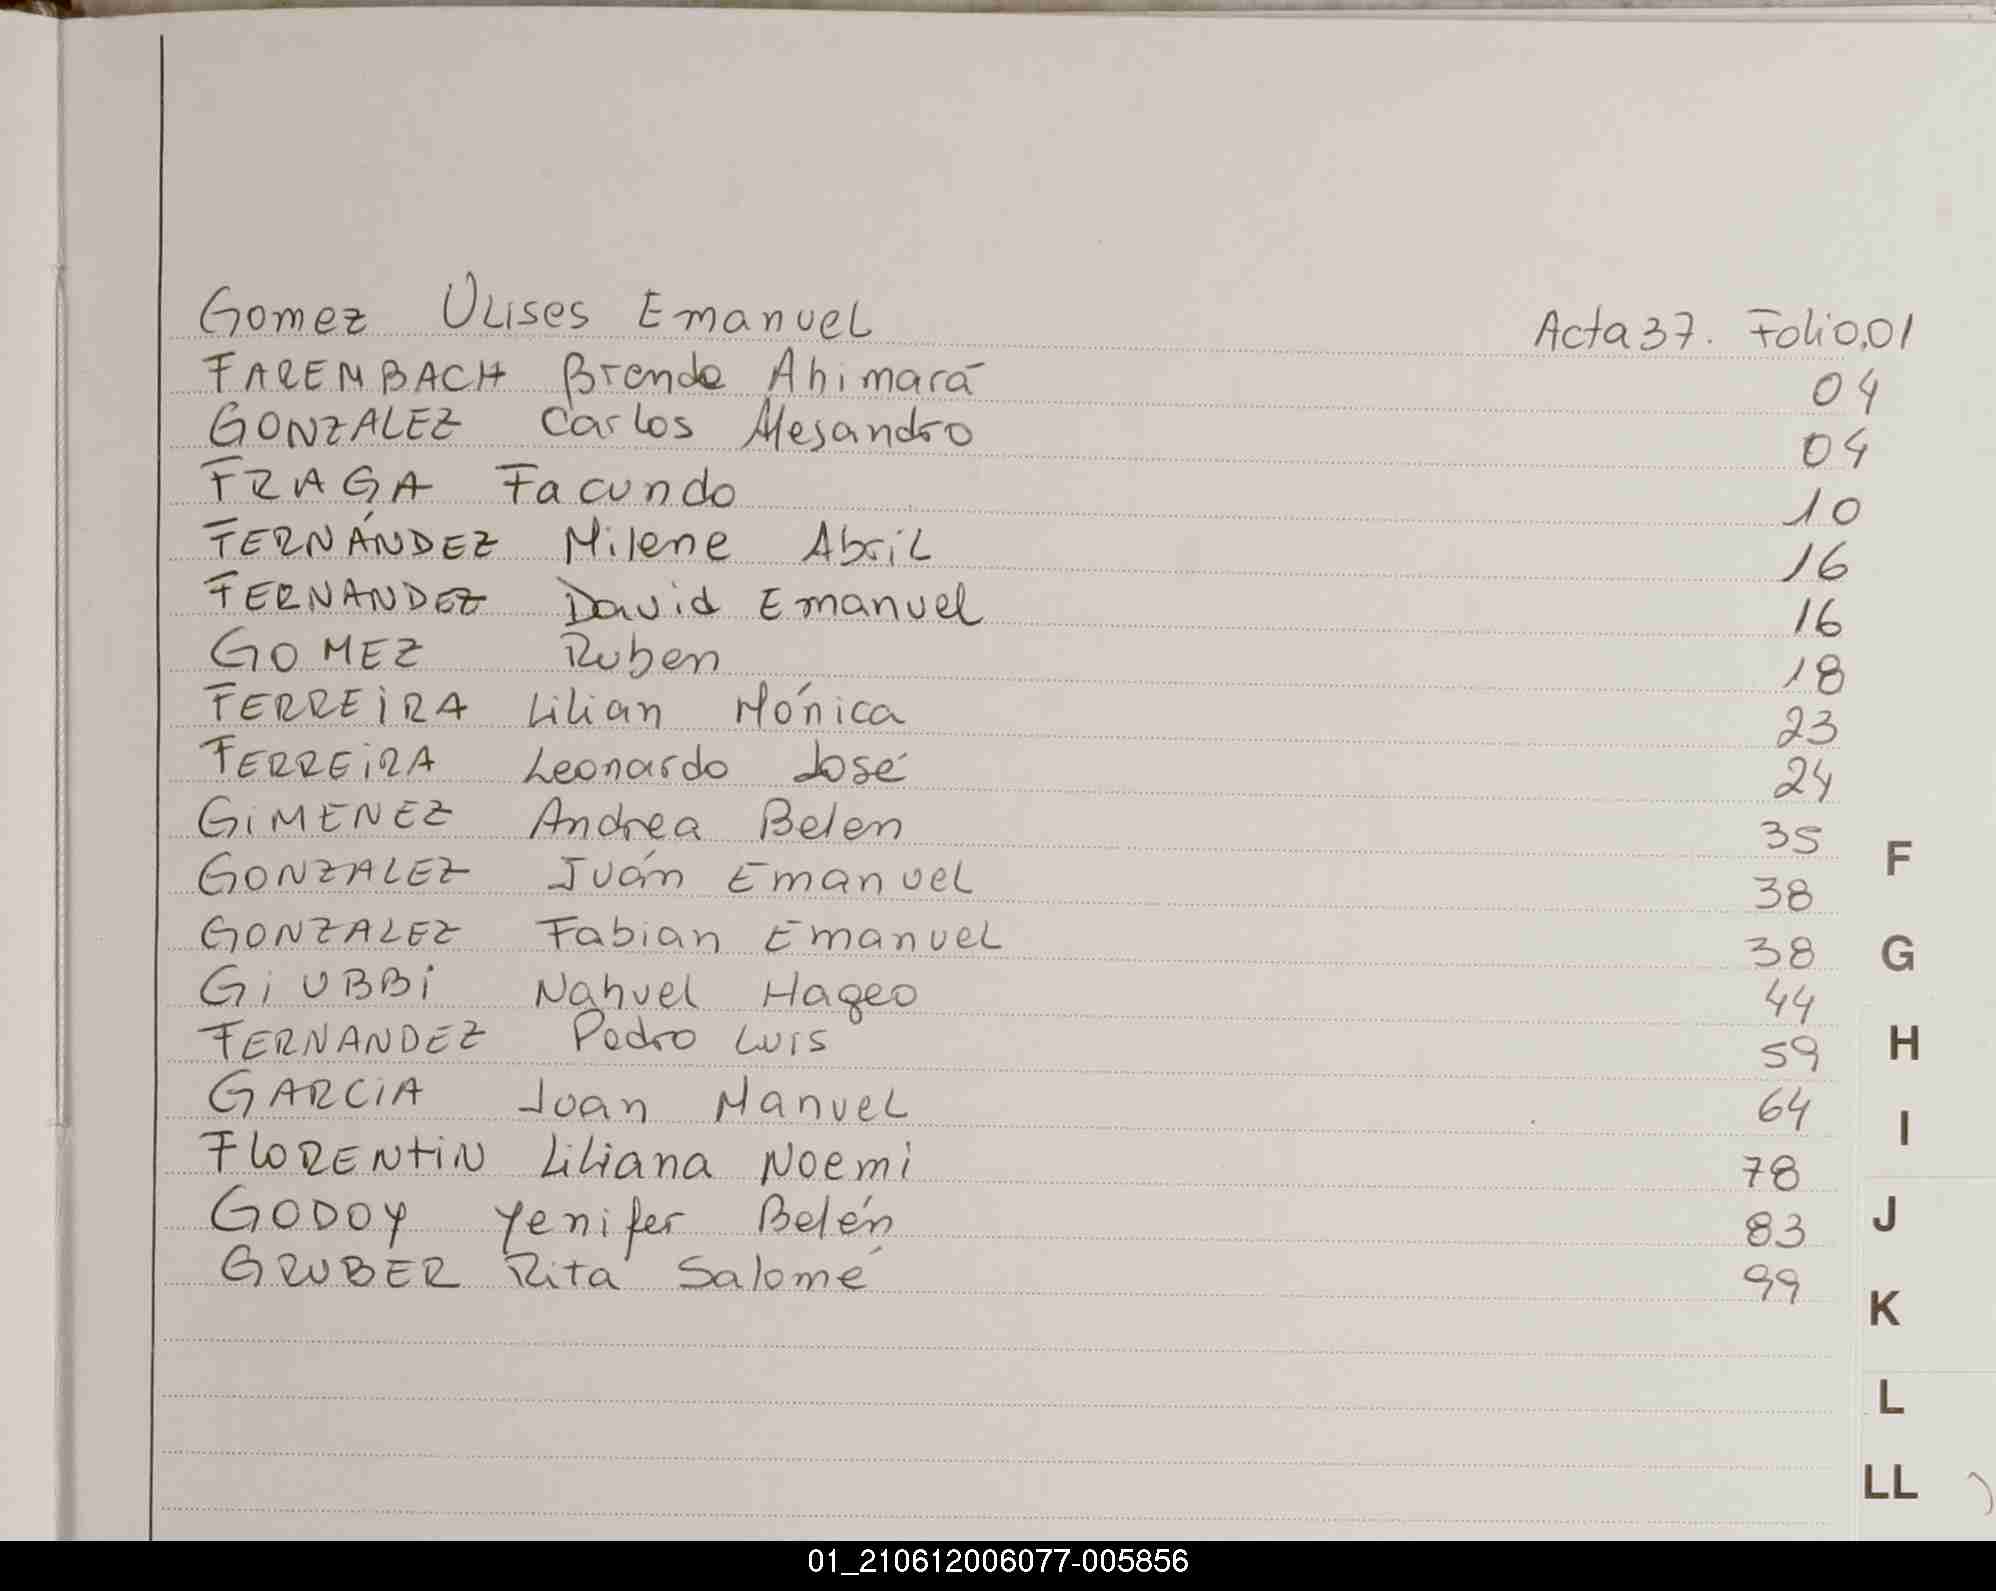 Gomez Ulises Emanuel Acta 37. Folio, 01
FAREMBACH Brenda Ahimará 04
GONZALEZ Carlos Alesandro 04
FRAGA Facundo 10
FERNÁNDEZ Milene Abril 16
FERNANDEZ David Emanuel 16
GOMEZ Ruben 18
FERREiRA Lilian Mónica 23
FERREiRA Leonardo José 24
GiMENEZ Andrea Belen 35
GONZALEZ Juán Emanuel 38
GONZALEZ Fabian Emanuel 38
GiUBBi Nahuel Hageo 44
FERNANDEZ Pedro Luis 59
GARCiA Juan Manuel 64
FlORENtiN Liliana Noemi 78
GODOY Yenifer Belén 83
GRUBER Rita Salomé 99
F
G
H
I
J
K
L
LL
01_210612006077-005856